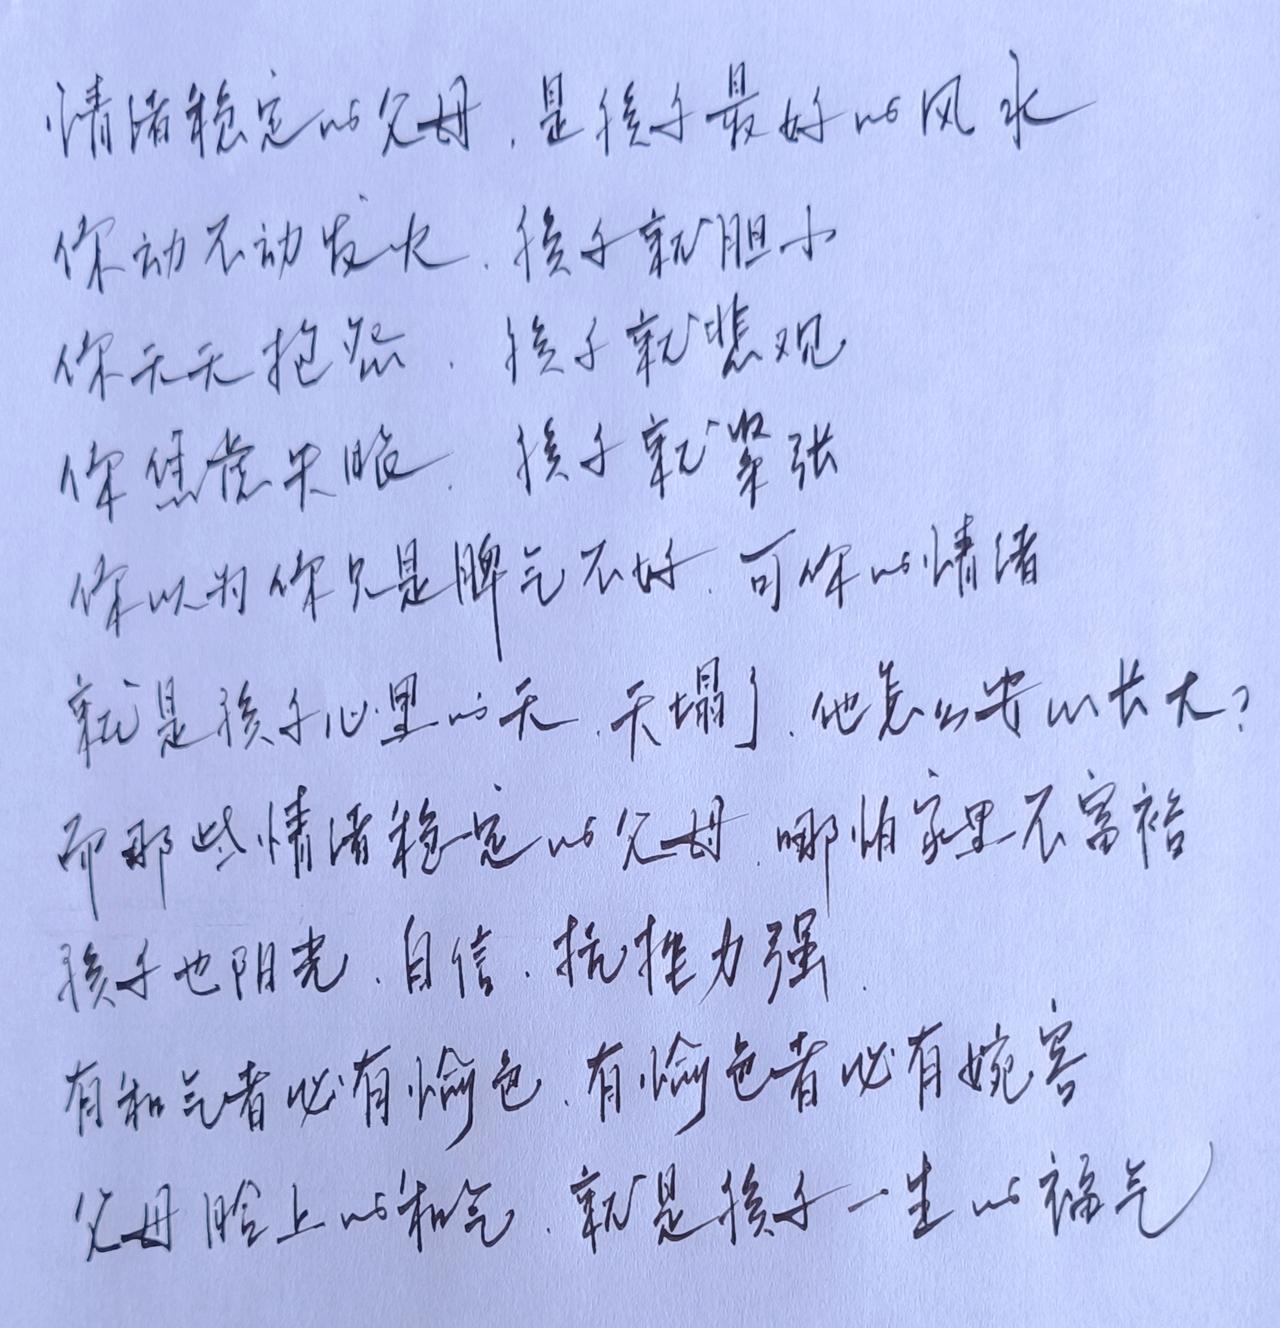 情绪稳定的父母，是孩子最好的风水
你动不动发火，孩子就胆小
你天天抱怨，孩子就悲观
你焦虑失眠，孩子就紧张
你以为你只是脾气不好，可你的情绪
就是孩子心里的天，天塌了，他怎么安心长大？
而那些情绪稳定的父母，哪怕家里不富裕
孩子也阳光、自信、抗挫力强。
有和气者必有愉色，有愉色者必有婉容
父母脸上的和气，就是孩子一生的福气